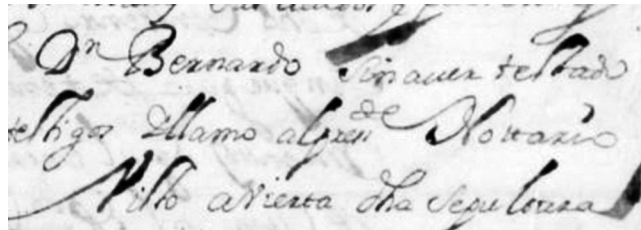 Dn Bernardo sin aver testado
testigos Illamo alpren de Nottario
Visto avierta dha sepultura